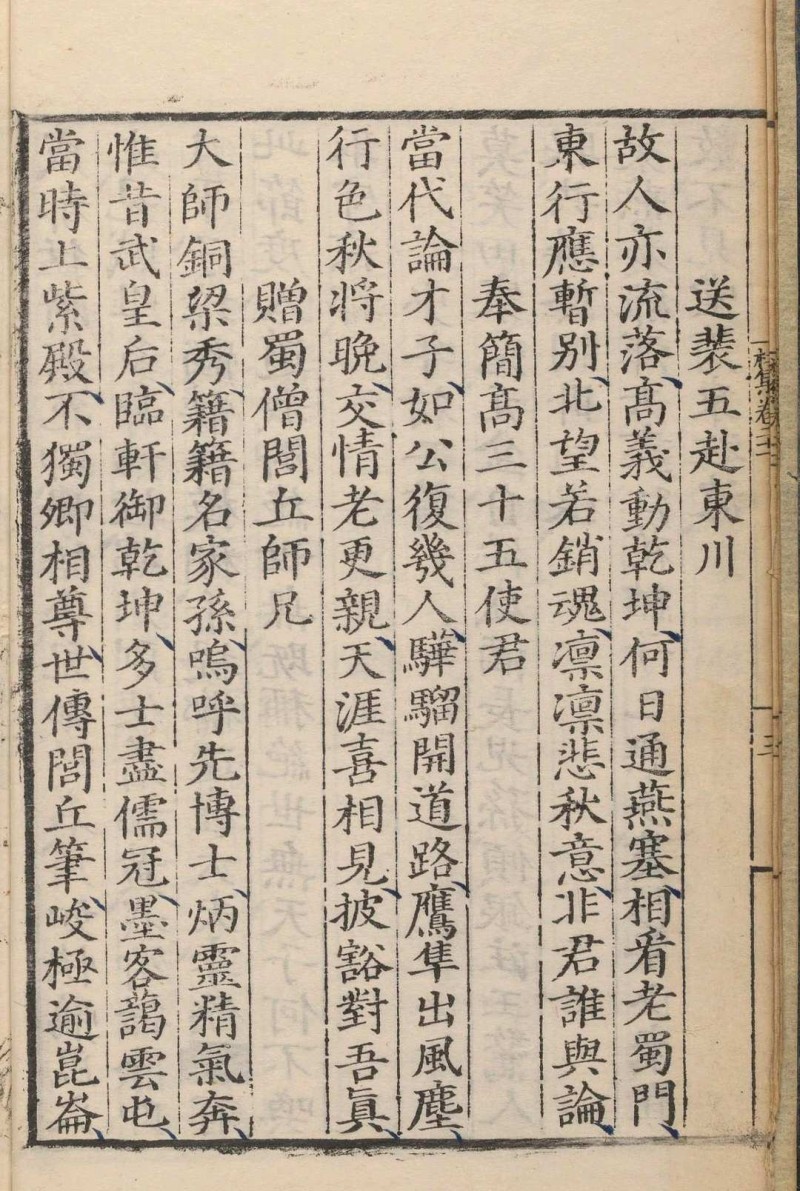 送裴五赴東川
故人亦流落髙義動乾坤何日通燕塞相看老蜀門
東行應暫别北望若銷魂凛凛悲秋意非君誰與論
奉簡髙三十五使君
當代論才子如公復幾人驊騮開道路鷹隼出風塵
行色秋将晚交情老更親天涯喜相見披豁對吾眞
贈蜀僧閭丘師兄
大師銅梁秀籍籍名家孫嗚呼先博士炳靈精氣奔
惟昔武皇后臨軒御乾坤多士盡儒冠墨客藹雲屯
當時上紫殿不獨卿相尊世傳閭丘筆峻極逾崑崙